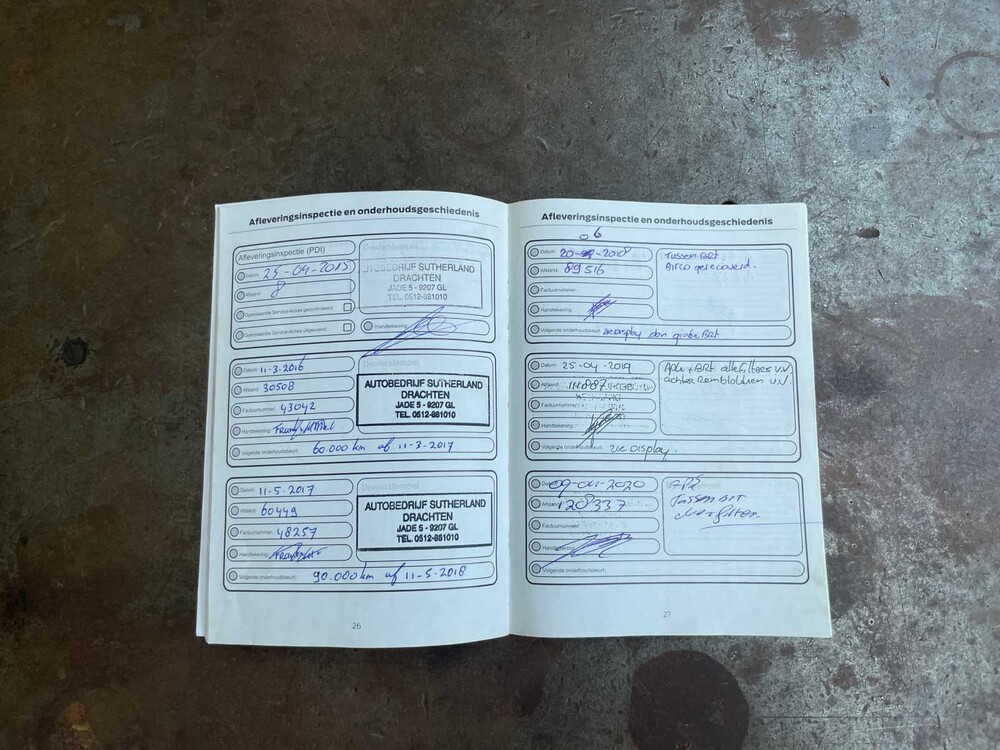 Afleveringsinspectie en onderhoudsgeschiedenis
Afleveringsinspectie (PDI)
Datum: 25-09-2015
Afstand: 8
Openstaande Service-Acties gecontroleerd:
Openstaande Service-Acties uitgevoerd:
Dealerstempel
AUTOBEDRIJF SUTHERLAND
DRACHTEN
JADE 5 - 9207 GL
TEL. 0512-881010
Handtekening:
Datum: 11-3-2016
Afstand: 30508
Factuurnummer: 43042
Handtekening:
Volgende onderhoudsbeurt: 60.000 km of 11-3-2017
Dealerstempel
AUTOBEDRIJF SUTHERLAND
DRACHTEN
JADE 5 - 9207 GL
TEL. 0512-881010
Datum: 11-5-2017
Afstand: 60449
Factuurnummer: 48257
Handtekening:
Volgende onderhoudsbeurt: 90.000 km of 11-5-2018
Dealerstempel
AUTOBEDRIJF SUTHERLAND
DRACHTEN
JADE 5 - 9207 GL
TEL. 0512-881010
26
Afleveringsinspectie en onderhoudsgeschiedenis
06
Datum: 20- -2018
Afstand: 89516
Factuurnummer:
Handtekening:
Volgende onderhoudsbeurt: zie display dan grote Brt
Tussen Brt
Airco gerecoverd.
Datum: 25-04-2019
Afstand:
Factuurnummer:
Handtekening:
Volgende onderhoudsbeurt: zie Display.
Apk + Brt alle filters v.v
achter Remblokken v.v.
Datum: 09-04-2020
Afstand: 128337
Factuurnummer:
Handtekening:
Volgende onderhoudsbeurt:
APK
Tussen BRT
27